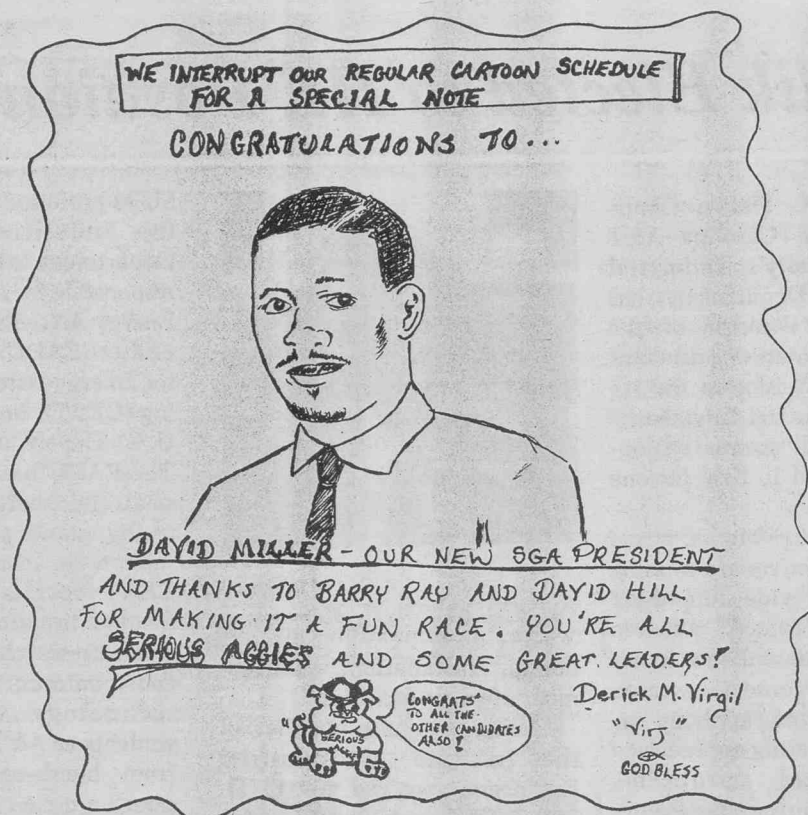 WE INTERRUPT OUR REGULAR CARTOON SCHEDULE
FOR A SPECIAL NOTE
CONGRATULATIONS TO...
DAVID MILLER - OUR NEW SGA PRESIDENT
AND THANKS TO BARRY RAY AND DAVID HILL
FOR MAKING IT A FUN RACE. YOU'RE ALL
SERIOUS AGGIES AND SOME GREAT LEADERS!
CONGRATS
TO ALL THE
OTHER CANDIDATES
ALSO!
SERIOUS
Derick M. Virgil
"Virj"
GOD BLESS